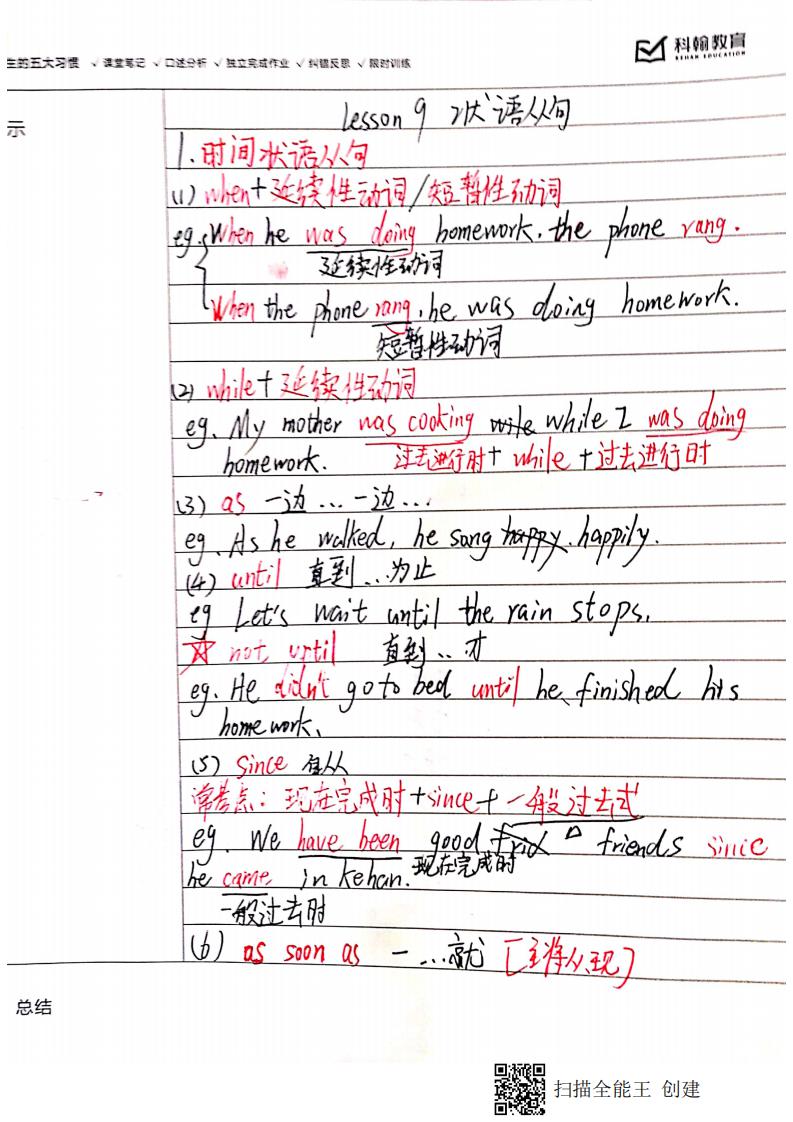 生的五大习惯 √课堂笔记 √口述分析 √独立完成作业 √纠错反思 √限时训练
科翰教育
KEHAN EDUCATION
示
Lesson 9 状语从句
1.时间状语从句
(1) when+延续性动词/短暂性动词
eg. When he was doing homework. the phone rang.
延续性动词
When the phone rang, he was doing homework.
短暂性动词
(2) while+延续性动词
eg. My mother was cooking while I was doing
homework. 过去进行时+while+过去进行时
(3) as 一边…一边…
eg. As he walked, he sang happily.
(4) until 直到…为止
eg Let's wait until the rain stops.
☆ not until 直到…才
eg. He didn't go to bed until he finished his
homework.
(5) since 自从
常考点：现在完成时+since+一般过去式
eg. We have been good friends since
he came in Kehan. 现在完成时
一般过去时
(6) as soon as 一…就 [主将从现]
总结
扫描全能王 创建